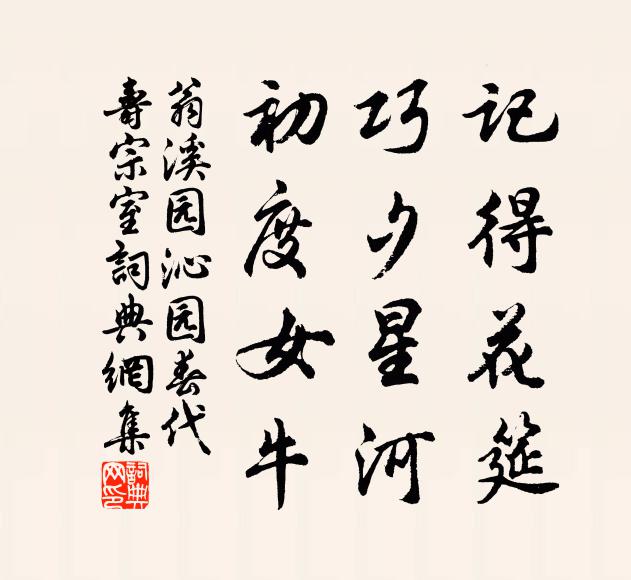 记得花筵
巧夕星河
初度女牛
翁溪园沁园春代
壽宗室詞典網集
詞典网印